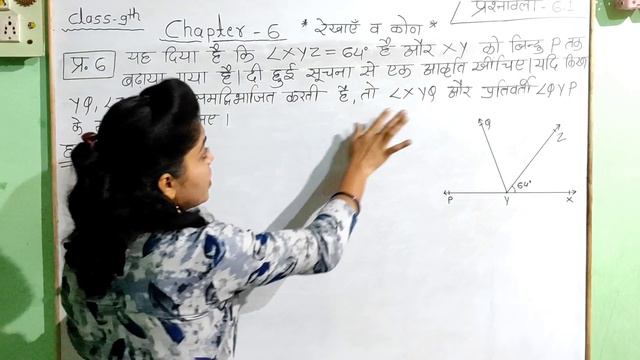 class-9th
Chapter - 6
* रेखाएँ व कोण *
प्रश्नावली - 6.1
प्र. 6 यह दिया है कि ∠XYZ = 64° है और XY को बिन्दु P तक
बढाया गया है। दी हुई सूचना से एक आकृति खींचिए। यदि किरण
YQ, समद्विभाजित करती है, तो ∠XYQ और प्रतिवर्ती ∠QYP
के
Q
Z
64°
P Y X